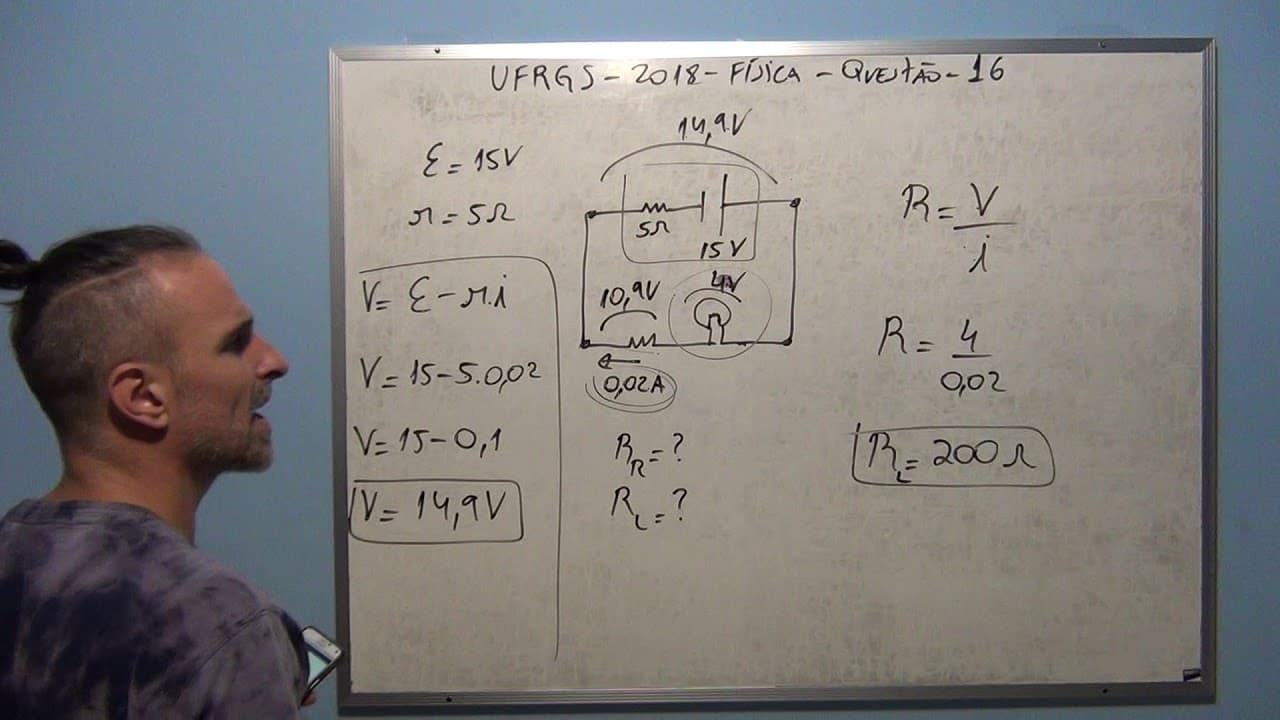 UFRGS - 2018 - FÍSICA - QUESTÃO - 16
ε = 15V
r = 5Ω
V = ε - r.i
V = 15 - 5.0,02
V = 15 - 0,1
V = 14,9V
14,9V
5Ω
15V
10,9V
4V
0,02A
R_R = ?
R_L = ?
R = V/i
R = 4/0,02
R_L = 200Ω